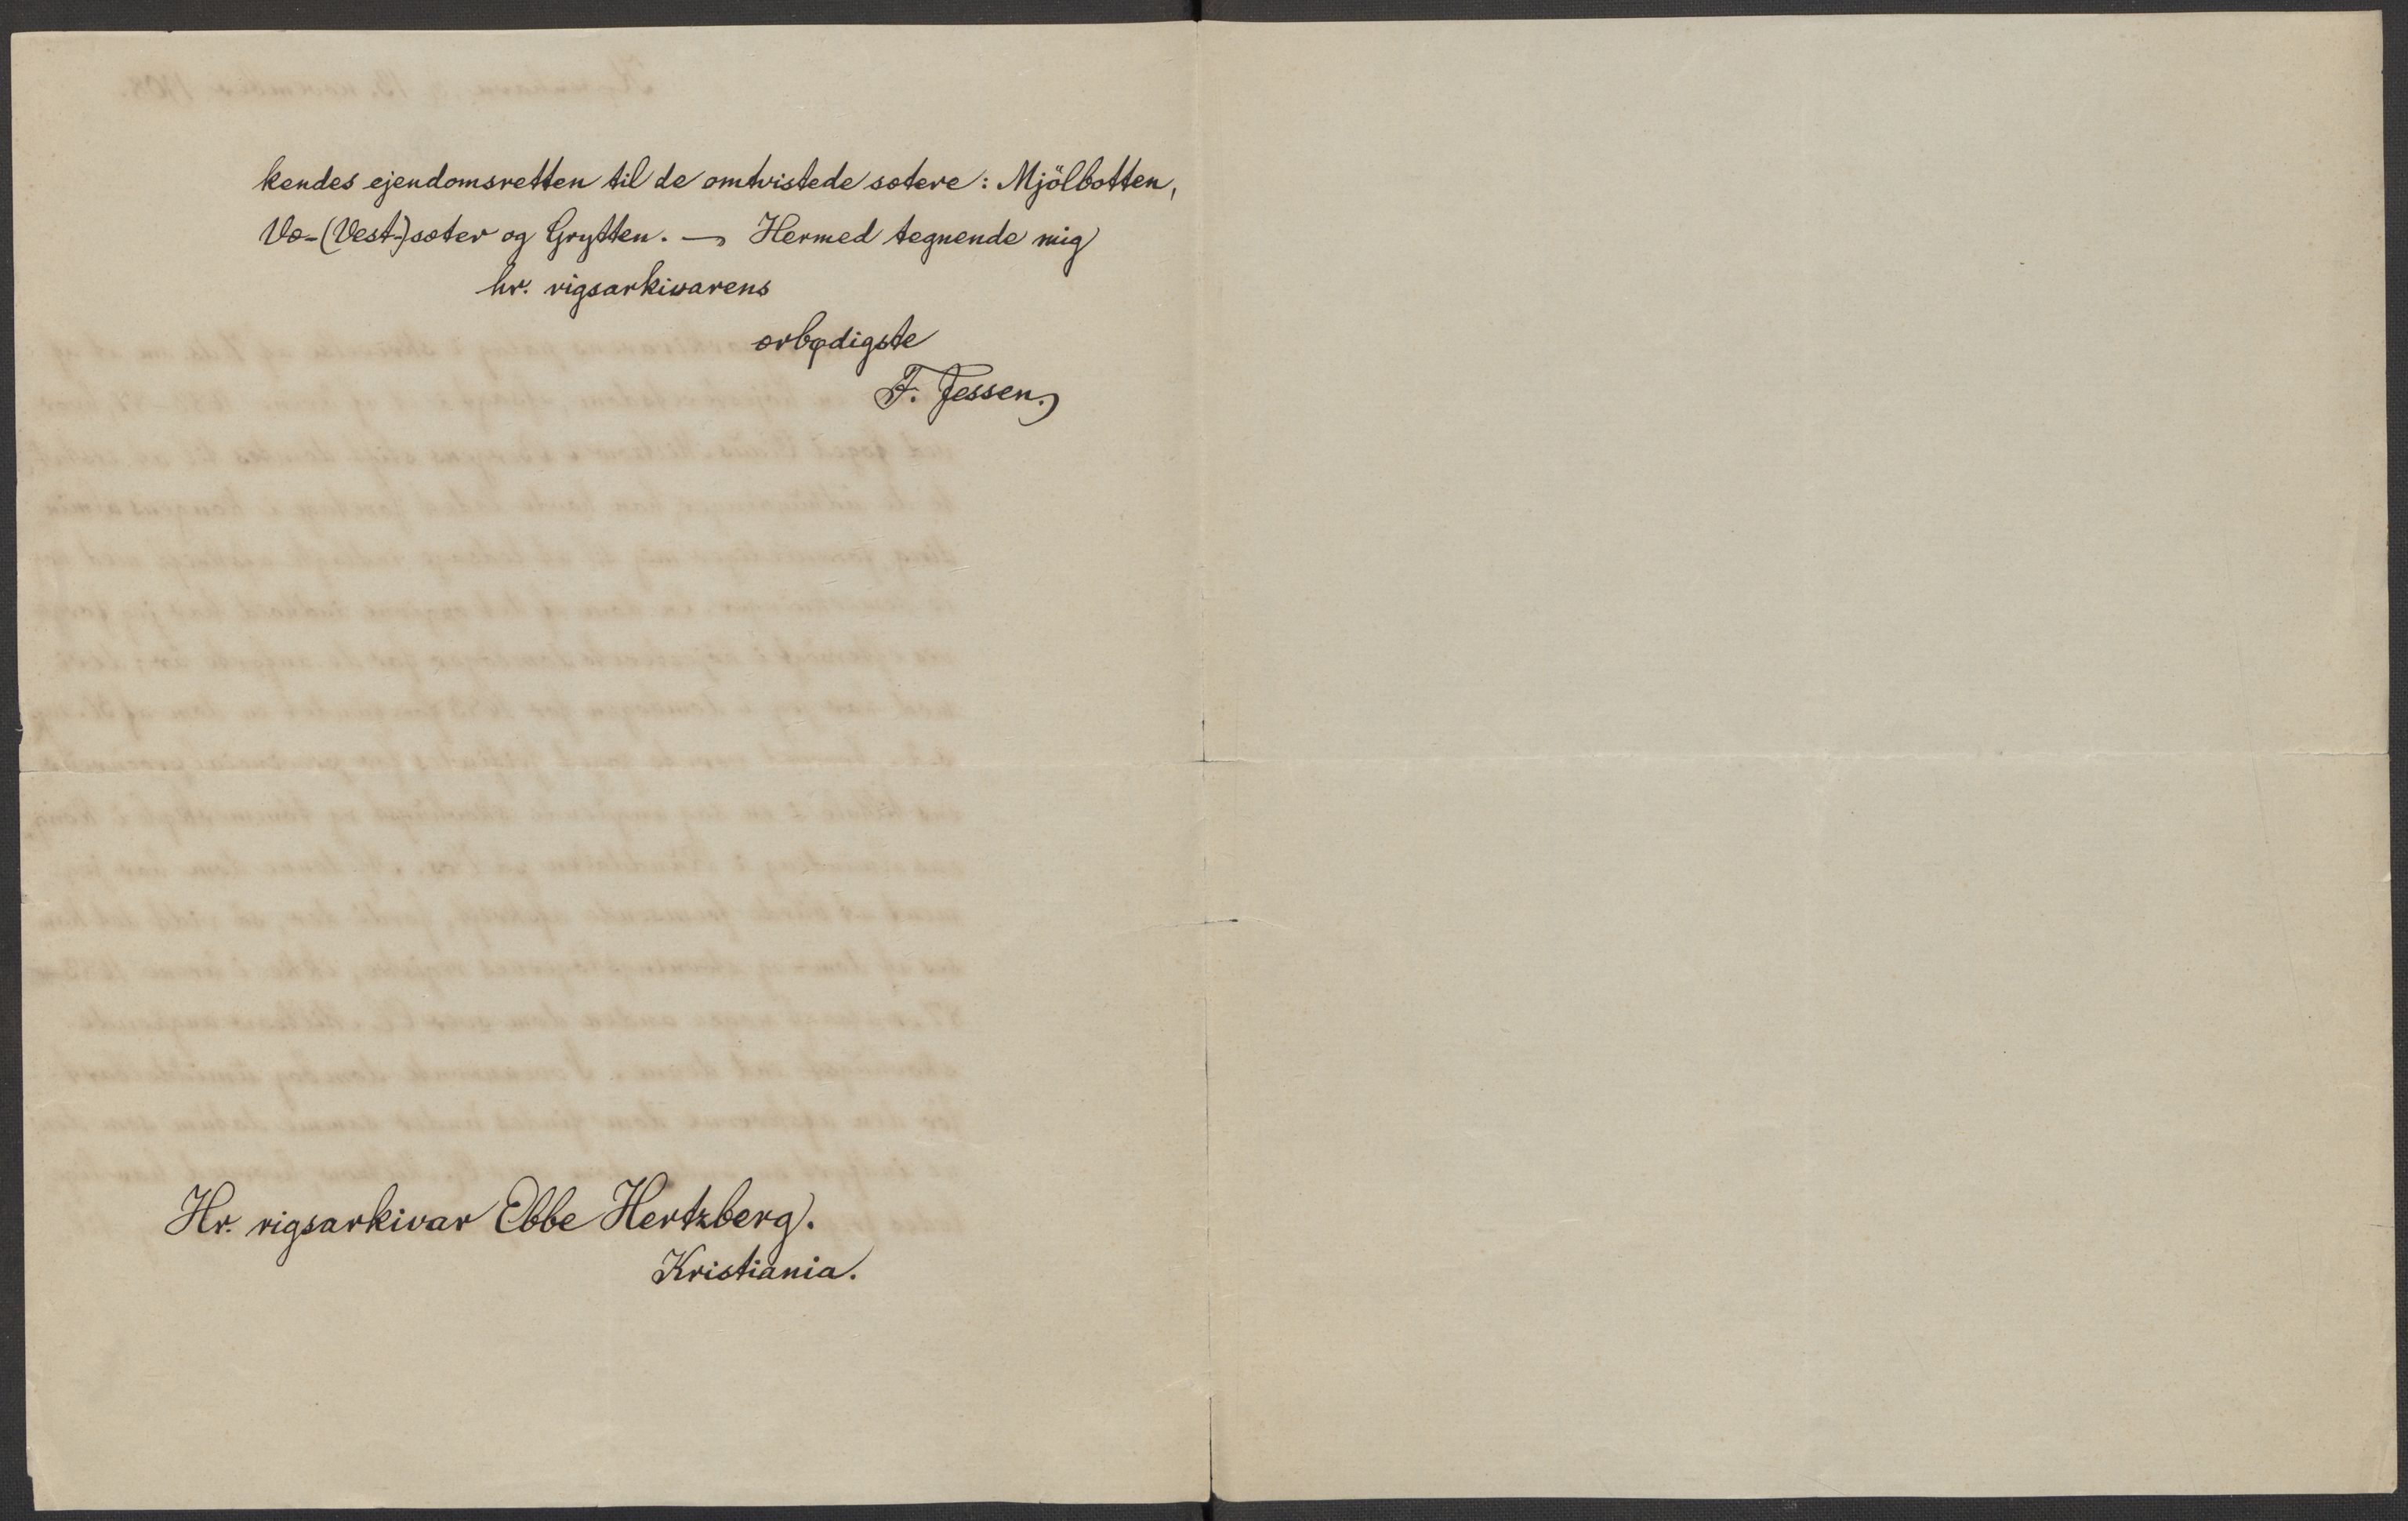 kendes ejendomsretten til de omtvistede sætere: Mjölbotten,
Væ-(Vest-)sæter og Grytten. — Hermed tegnende mig
hr. rigsarkivarens
ærbødigste
F. Jessen.
Hr. rigsarkivar Ebbe Hertzberg.
Kristiania.